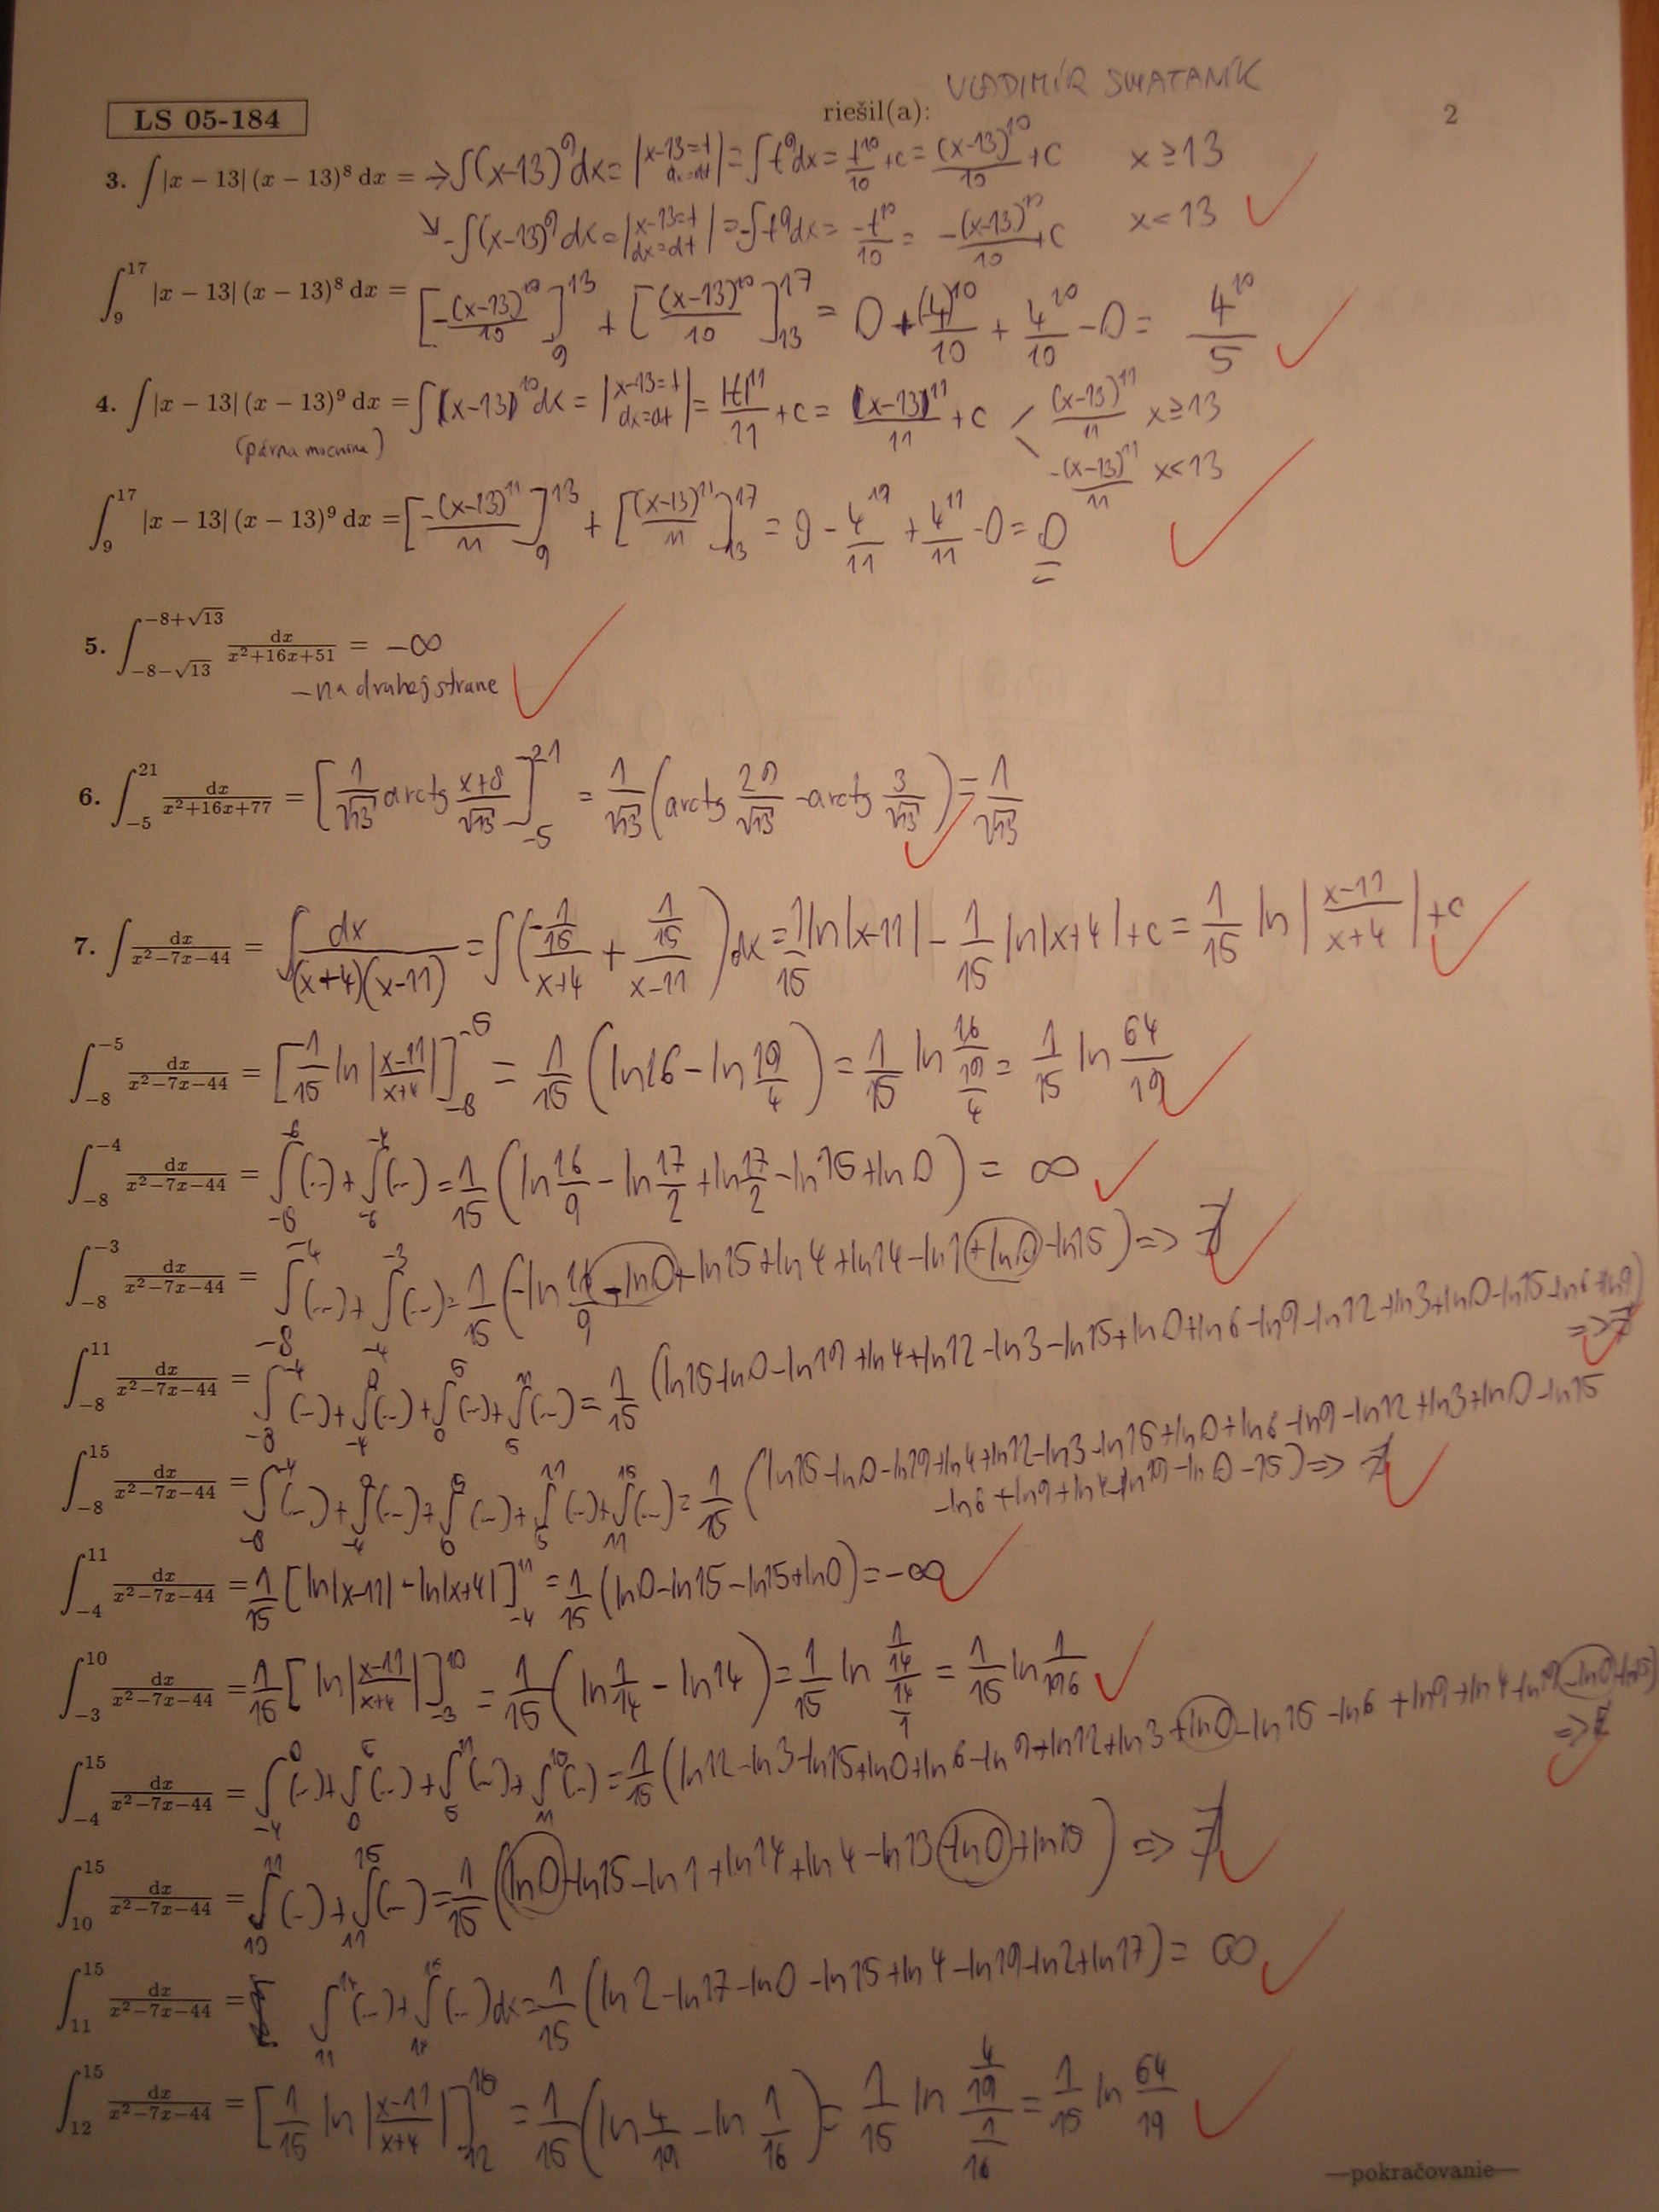 LS 05-184 riešil(a): VLADIMÍR 2
3. ∫ |x − 13| (x − 13)⁸ dx = → ∫(x-13)⁹dx = |x-13=t dx=dt| = ∫t⁹dx = t¹⁰/10 + c = (x-13)¹⁰/10 + C x ≥ 13
↘ -∫(x-13)⁹dx = |x-13=t dx=dt| = -∫t⁹dx = -t¹⁰/10 = -(x-13)¹⁰/10 + C x < 13
∫₉¹⁷ |x − 13| (x − 13)⁸ dx = [-(x-13)¹⁰/10]₉¹³ + [(x-13)¹⁰/10]₁₃¹⁷ = 0 + (-4)¹⁰/10 + 4¹⁰/10 - 0 = 4¹⁰/5
4. ∫ |x − 13| (x − 13)⁹ dx = ∫|x-13|¹⁰dx = |x-13=t dx=dt| = |t|¹¹/11 + c = |x-13|¹¹/11 + C (x-13)¹¹/11 x ≥ 13
(párna mocnina) -(x-13)¹¹/11 x < 13
∫₉¹⁷ |x − 13| (x − 13)⁹ dx = [-(x-13)¹¹/11]₉¹³ + [(x-13)¹¹/11]₁₃¹⁷ = 0 - 4¹¹/11 + 4¹¹/11 - 0 = 0
5. ∫_{−8−√13}^{−8+√13} dx/(x²+16x+51) = -∞
- na druhej strane
6. ∫₋₅²¹ dx/(x²+16x+77) = [1/√13 arctg (x+8)/√13]₋₅²¹ = 1/√13 (arctg 29/√13 - arctg 3/√13) = 1/√13
7. ∫ dx/(x²−7x−44) = ∫ dx/((x+4)(x-11)) = ∫(-1/15/(x+4) + 1/15/(x-11))dx = 1/15 ln|x-11| - 1/15 ln|x+4| + c = 1/15 ln|(x-11)/(x+4)| + c
∫₋₈⁻⁵ dx/(x²−7x−44) = [1/15 ln|(x-11)/(x+4)|]₋₈⁻⁵ = 1/15 (ln16 - ln 19/4) = 1/15 ln 16/(19/4) = 1/15 ln 64/19
∫₋₈⁻⁴ dx/(x²−7x−44) = ∫₋₈⁻⁶(...) + ∫₋₆⁻⁴(...) = 1/15 (ln 16/9 - ln 17/2 + ln 17/2 - ln 15 + ln 0) = ∞
∫₋₈⁻³ dx/(x²−7x−44) = ∫₋₈⁻⁴(...) + ∫₋₄⁻³(...) = 1/15 ( - ln0 + ln15 + ln4 + ln14 - ln1 + ln0 - ln15) => ∄
∫₋₈¹¹ dx/(x²−7x−44) = ∫₋₈⁻⁴(...) + ∫₋₄⁰(...) + ∫₀⁵(...) + ∫₅¹¹(...) = 1/15 (ln15 - ln0 - ln19 + ln4 + ln12 - ln3 - ln15 + ln0 + ln6 - ln9 - ln12 + ln3 + ln0 - ln15 - ln6 + ln9)
=> ∄
∫₋₈¹⁵ dx/(x²−7x−44) = ∫₋₈⁻⁴(...) + ∫₋₄⁰(...) + ∫₀⁵(...) + ∫₅¹¹(...) + ∫₁₁¹⁵(...) = 1/15 (ln15 - ln0 - ln19 + ln4 + ln12 - ln3 - ln15 + ln0 + ln6 - ln9 - ln12 + ln3 + ln0 - ln15
- ln6 + ln9 + ln4 - ln19 - ln0 - 15) => ∄
∫₋₄¹¹ dx/(x²−7x−44) = 1/15 [ln|x-11| - ln|x+4|]₋₄¹¹ = 1/15 (ln0 - ln15 - ln15 + ln0) = -∞
∫₋₃¹⁰ dx/(x²−7x−44) = 1/15 [ln|(x-11)/(x+4)|]₋₃¹⁰ = 1/15 (ln 1/14 - ln14) = 1/15 ln (1/14)/(14/1) = 1/15 ln 1/196
∫₋₄¹⁵ dx/(x²−7x−44) = ∫₋₄⁰(...) + ∫₀⁵(...) + ∫₅¹¹(...) + ∫₁₁¹⁵(...) = 1/15 (ln12 - ln3 - ln15 + ln0 + ln6 - ln9 + ln12 + ln3 + ln0 - ln15 - ln6 + ln9 + ln4 - ln19 - ln0 + ln15)
=> ∄
∫₁₀¹⁵ dx/(x²−7x−44) = ∫₁₀¹¹(...) + ∫₁₁¹⁵(...) = 1/15 (ln0 - ln15 - ln1 + ln14 + ln4 - ln13 - ln0 + ln15) => ∄
∫₁₁¹⁵ dx/(x²−7x−44) = ∫₁₁(...) + ∫¹⁵(...)dx = 1/15 (ln2 - ln17 - ln0 - ln15 + ln4 - ln19 + ln2 + ln17) = ∞
∫₁₂¹⁵ dx/(x²−7x−44) = [1/15 ln|(x-11)/(x+4)|]₁₂¹⁵ = 1/15 (ln 4/19 - ln 1/16) = 1/15 ln (4/19)/(1/16) = 1/15 ln 64/19
—pokračovanie—